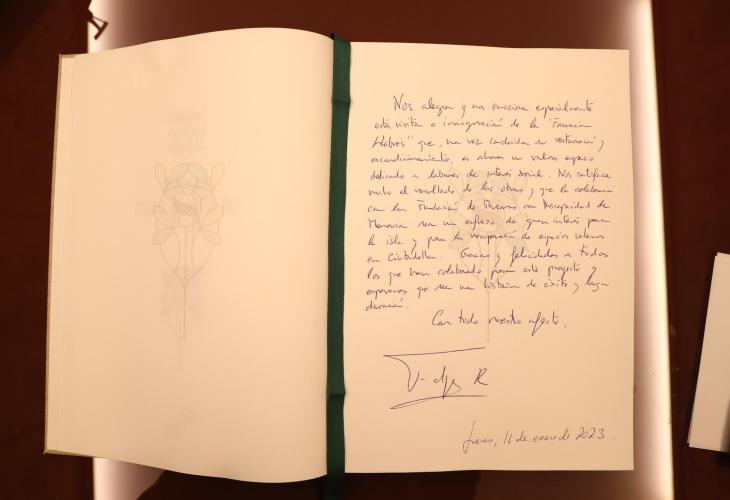 Nos alegra y nos emociona especialmente
esta visita e inauguración de la "Farmacia
Llabrés" que, una vez concluida su restauración y
reacondicionamiento, es ahora un valioso espacio
dedicado a labores de interés social. Nos satisface
mucho el resultado de las obras y que la colaboración
con la Fundación de Personas con Discapacidad de
Menorca sea un esfuerzo de gran interés para
la isla y para la recuperación de espacios urbanos
en Ciutadella. Gracias y felicidades a todos
los que han colaborado para este proyecto y
esperamos que sea una historia de éxito y larga
duración.
Con todo nuestro afecto,
R
Jueves, 11 de enero de 2023.